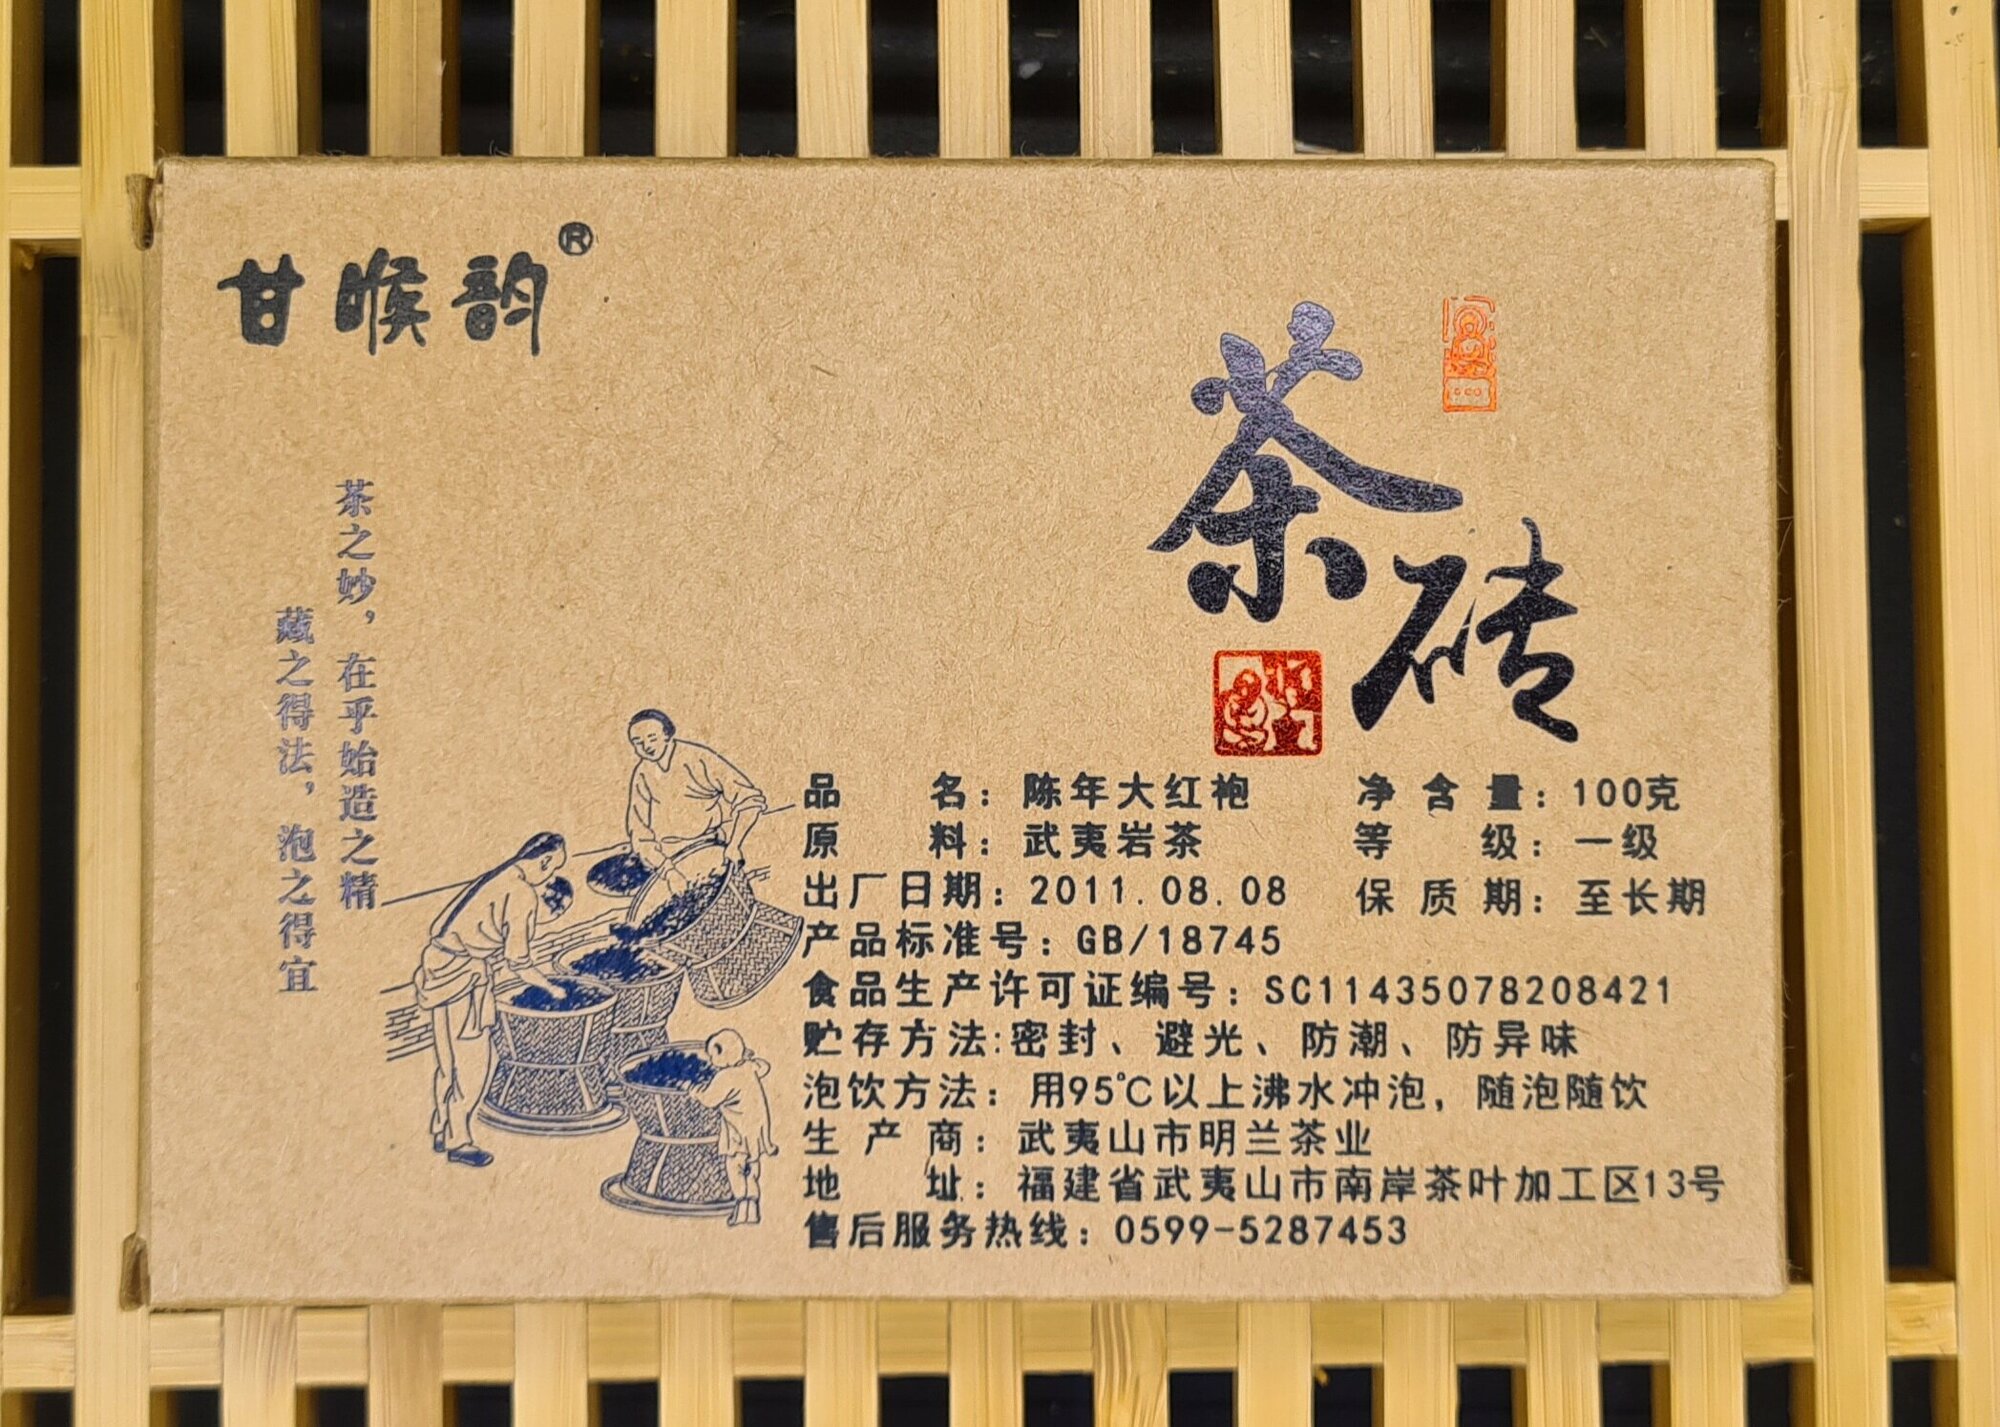 甘睺韵®
茶砖
茶之妙，在乎始造之精
藏之得法，泡之得宜
品名：陈年大红袍
净含量：100克
原料：武夷岩茶
等级：一级
出厂日期：2011.08.08
保质期：至长期
产品标准号：GB/18745
食品生产许可证编号：SC11435078208421
贮存方法:密封、避光、防潮、防异味
泡饮方法：用95℃以上沸水冲泡，随泡随饮
生产商：武夷山市明兰茶业
地址：福建省武夷山市南岸茶叶加工区13号
售后服务热线：0599-5287453